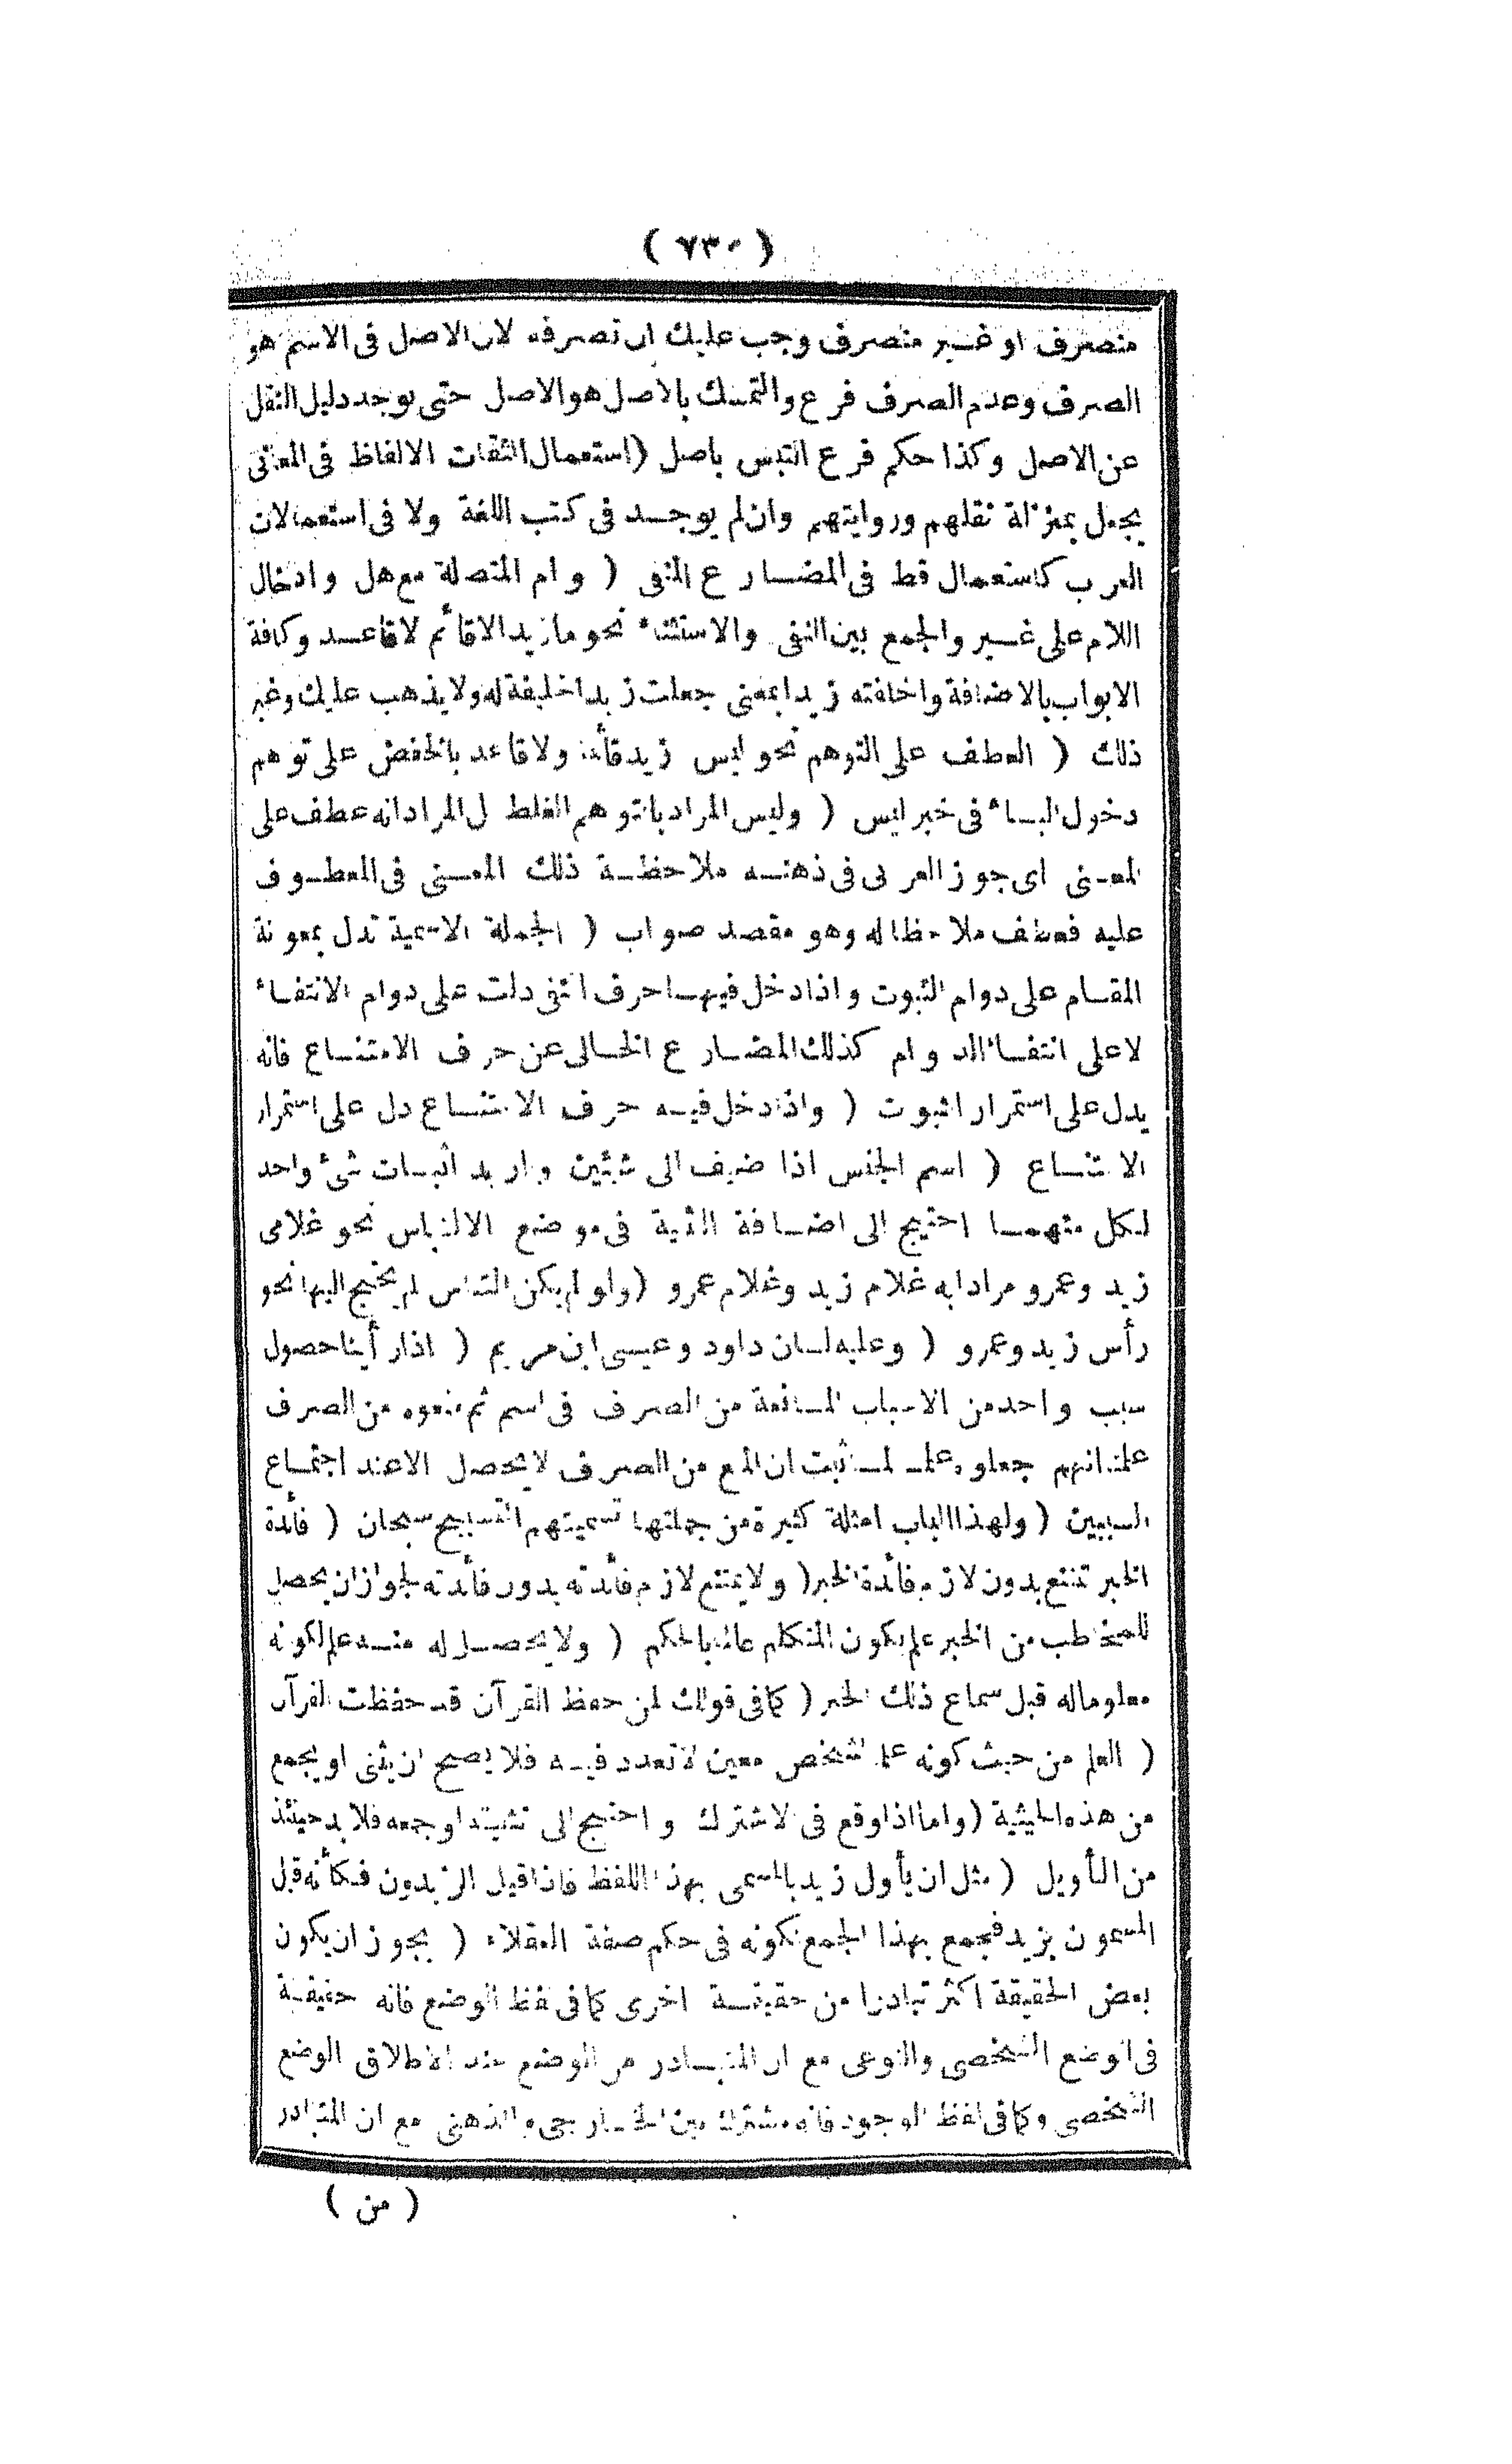 ( ٧٣٠ )
منصرف او غير منصرف وجب عليك ان تصرفه لان الاصل فى الاسم هو
الصرف وعدم الصرف فرع والتمسك بالاصل هو الاصل حتى يوجد دليل النقل
عن الاصل وكذا حكم فرع التبس باصل ( استعمال الثقات الالفاظ فى المعانى
يجعل بمنزلة نقلهم وروايتهم وان لم يوجد فى كتب اللغة ولا فى استعمالات
العرب كاستعمال قط فى المضارع المنفى ( وام المتصلة مع هل وادخال
اللام على غير والجمع بين النفى والاستثناء نحو ما زيد الا قائم لا قاعد وكافة
الابواب بالاضافة واخلفته زيدا بمعنى جعلت زيدا خليفة له ولا يذهب عليك وغير
ذلك ( العطف على التوهم نحو ليس زيد قائما ولا قاعد بالخفض على توهم
دخول الباء فى خبر ليس ( وليس المراد بالتوهم الغلط بل المراد انه عطف على
المعنى اى جوز العربى فى ذهنه ملاحظة ذلك المعنى فى المعطوف
عليه فعطف ملاحظا له وهو مقصد صواب ( الجملة الاسمية تدل بمعونة
المقام على دوام الثبوت واذا دخل فيها حرف النفى دلت على دوام الانتفاء
لا على انتفاء الدوام كذلك المضارع الخالى عن حرف الامتناع فانه
يدل على استمرار الثبوت ( واذا دخل فيه حرف الامتناع دل على استمرار
الامتناع ( اسم الجنس اذا ضيف الى شيئين واريد اثبات شئ واحد
لكل منهما احتيج الى اضافة التثنية فى موضع الالتباس نحو غلامى
زيد وعمرو مرادا به غلام زيد وغلام عمرو ( ولو لم يكن التباس لم يحتج اليها نحو
رأس زيد وعمرو ( وعليه لسان داود وعيسى ابن مريم ( اذا رأينا حصول
سبب واحد من الاسباب المانعة من الصرف فى اسم ثم منعوه من الصرف
علمنا انهم جعلوه علما لما ثبت ان المنع من الصرف لا يحصل الا عند اجتماع
السببين ( ولهذا الباب امثلة كثيرة من جملتها تسميتهم التسبيح سبحان ( فائدة
الخبر تمتنع بدون لازم فائدة الخبر ( ولا يمتنع لازم فائدته بدون فائدته لجواز ان يحصل
للمخاطب من الخبر علم بكون المتكلم عالما بالحكم ( ولا يحصل له منه علم لكونه
معلوما له قبل سماع ذلك الخبر ( كما فى قولك لمن حفظ القرآن قد حفظت القرآن
( العلم من حيث كونه علما لشخص معين لا تعدد فيه فلا يصح ان يثنى او يجمع
من هذه الحيثية ( واما اذا وقع فى الاشتراك واحتيج الى تثنيته او جمعه فلا بد حينئذ
من التأويل ( مثل ان يأول زيد بالمسمى بهذا اللفظ فاذا قيل الزيدون فكأنه قيل
المسمون بزيد فجمع بهذا الجمع لكونه فى حكم صفة العقلاء ( يجوز ان يكون
بعض الحقيقة اكثر تبادرا من حقيقة اخرى كما فى لفظ الوضع فانه حقيقة
فى الوضع الشخصى والنوعى مع ان المتبادر من الوضع عند الاطلاق الوضع
الشخصى وكما فى لفظ الوجود فانه مشترك بين الخارجى والذهنى مع ان المتبادر
( من )